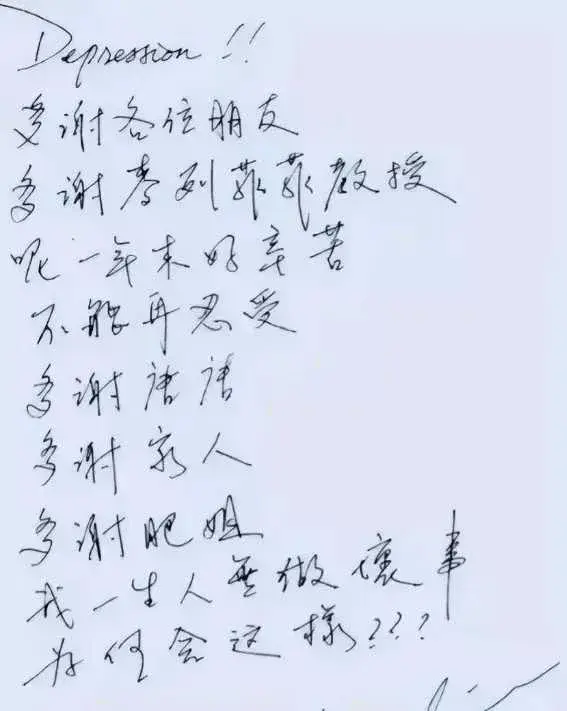 Depression !!
多謝各位朋友
多謝麥列菲菲教授
呢一年來好辛苦
不能再忍受
多謝唐唐
多謝家人
多謝肥姐
我一生人無做壞事
为何会这樣???